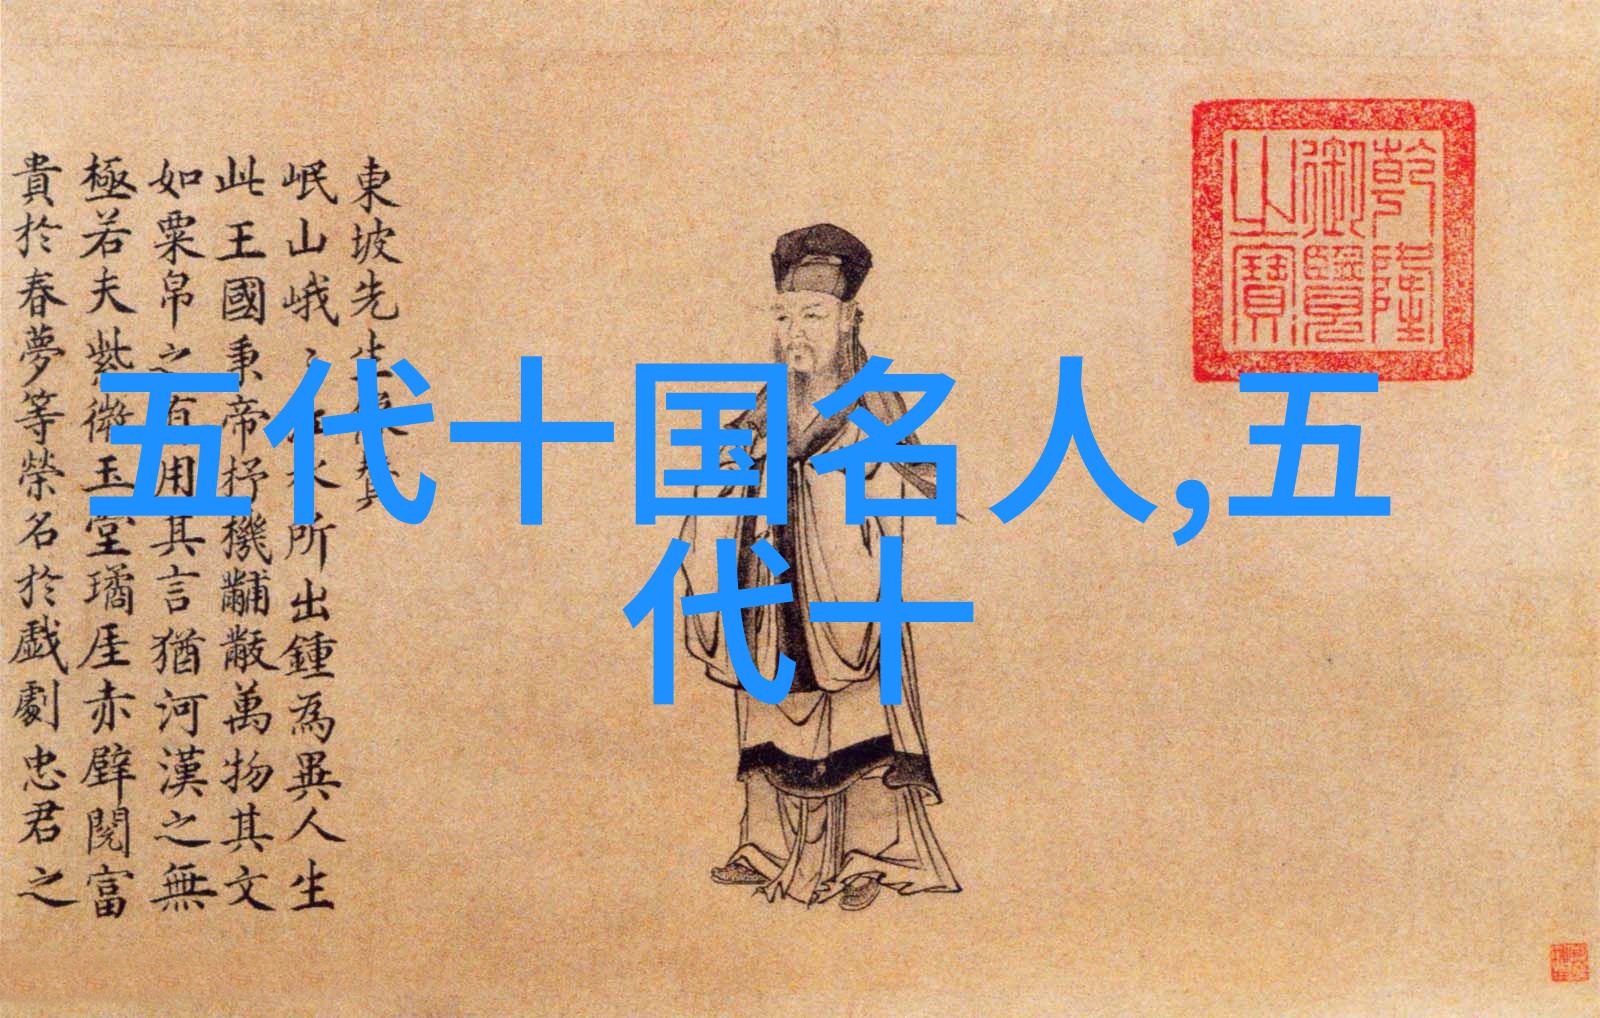 五代十国名人,五
代十
乾隆
御覽
之寶
東坡先生
岷山峨江水所出鍾為異人生
此王國秉帝杼機黼黻萬物其文
如粟帛之有用其言猶河漢之無
極若夫紫微玉堂璚厓赤壁閱富
貴於春夢等榮名於戯劇忠君之